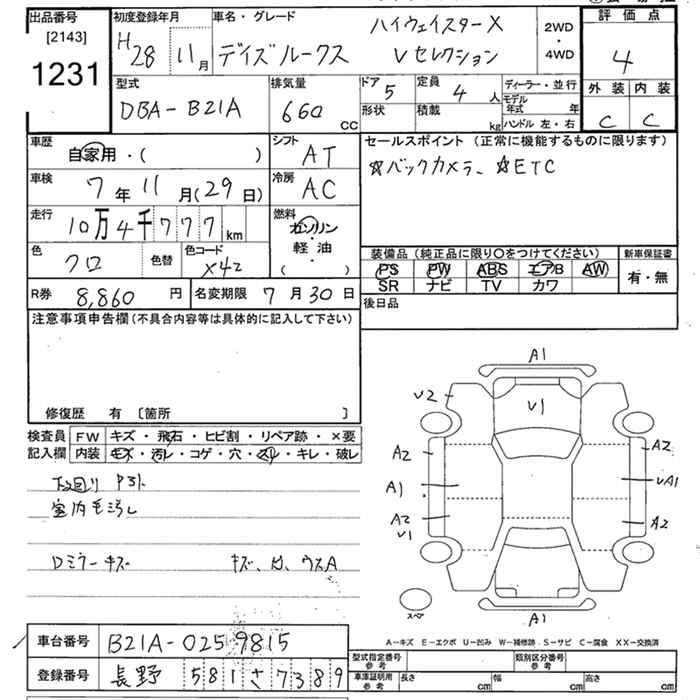 出品番号 初度登録年月 車名・グレード 評価点
[2143] H28 11月 デイズルークス ハイウェイスターX Vセレクション 2WD・4WD 4
1231
型式 排気量 ドア 5 定員 4人 ディーラー・並行 外装 内装
DBA-B21A 660cc 形状 積載 kg モデル年式 年 C C
ハンドル 左・右
車歴 自家用・( ) シフト AT セールスポイント(正常に機能するものに限ります)
車検 7年11月(29日) 冷房 AC ☆バックカメラ、☆ETC
走行 10万4千777km 燃料 ガソリン・軽油・( )
色 クロ 色替 色コード X42
装備品(純正品に限り○をつけてください) 新車保証書
PS PW ABS エアB AW 有・無
SR ナビ TV カワ
R券 8,860円 名変期限 7月30日 後日品
注意事項申告欄(不具合内容等は具体的に記入して下さい)
修復歴 有 [箇所 ]
検査員記入欄 FW キズ・飛石・ヒビ割・リペア跡・×要
内装 キズ・汚レ・コゲ・穴・スレ・キレ・破レ
下回り
室内毛汚レ
Dミラーキズ
A1
U2 U1
A2 A2
A1 UA1
A2 A2
U1
スペア A1
A-キズ E-エクボ U-凹み W-補修跡 S-サビ C-腐食 XX-交換済
車台番号 B21A-0259815
登録番号 長野 581さ7389
型式指定番号 参考 類別区分番号 参考
車庫証明用 参考 長さ cm 幅 cm 高さ cm